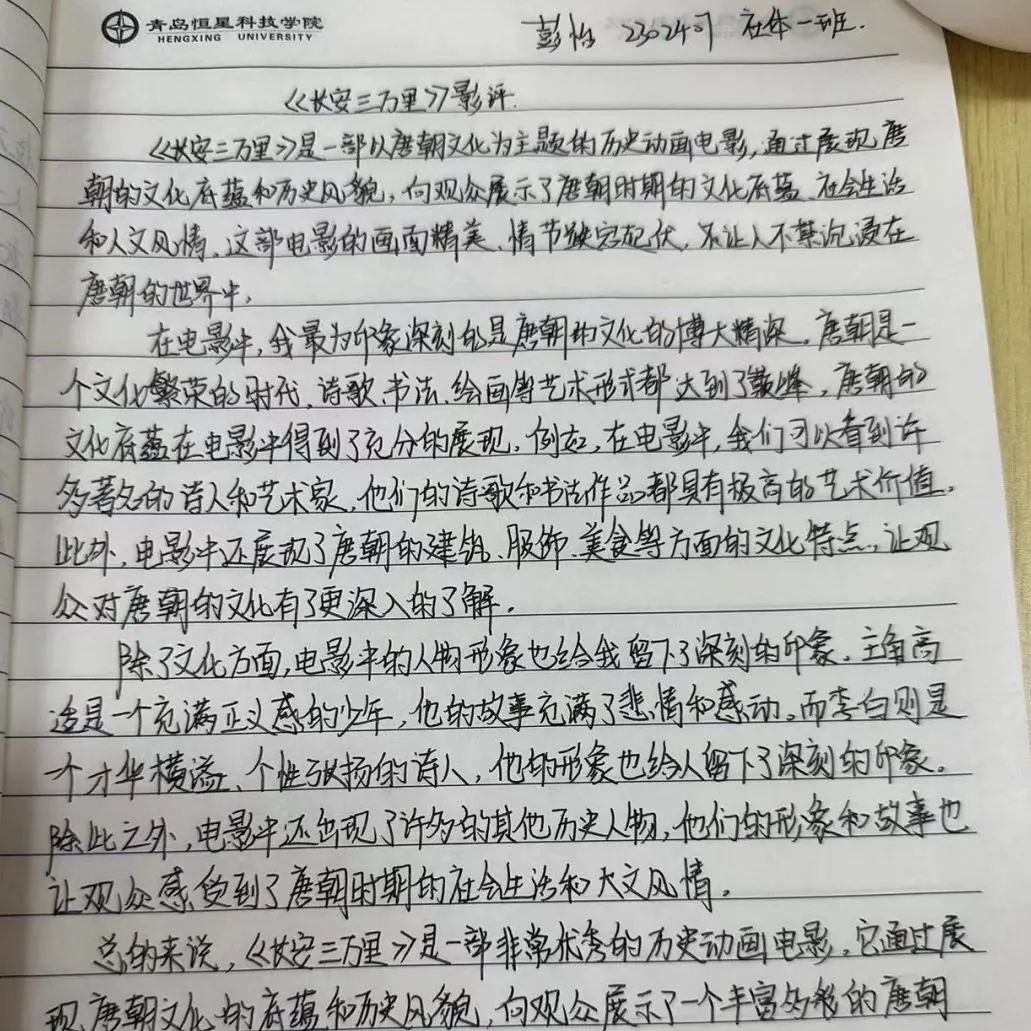 青岛恒星科技学院
HENGXING UNIVERSITY
彭怡 2302401 社体一班.
《长安三万里》影评.
《长安三万里》是一部以唐朝文化为主题的历史动画电影,通过展现唐
朝的文化底蕴和历史风貌,向观众展示了唐朝时期的文化底蕴、社会生活
和人文风情。这部电影的画面精美、情节跌宕起伏,不让人不禁沉浸在
唐朝的世界中。
在电影中,我最为印象深刻的是唐朝的文化的博大精深。唐朝是一
个文化繁荣的时代,诗歌、书法、绘画等艺术形式都达到了巅峰,唐朝的
文化底蕴在电影中得到了充分的展现。例如,在电影中,我们可以看到许
多著名的诗人和艺术家,他们的诗歌和书法作品都具有极高的艺术价值。
此外,电影中还展现了唐朝的建筑、服饰、美食等方面的文化特点,让观
众对唐朝的文化有了更深入的了解。
除了文化方面,电影中的人物形象也给我留下了深刻的印象。主角高
适是一个充满正义感的少年,他的故事充满了悲情和感动。而李白则是
一个才华横溢、个性张扬的诗人,他的形象也给人留下了深刻的印象。
除此之外,电影中还出现了许多的其他历史人物,他们的形象和故事也
让观众感受到了唐朝时期的社会生活和人文风情。
总的来说,《长安三万里》是一部非常优秀的历史动画电影。它通过展
现唐朝文化的底蕴和历史风貌,向观众展示了一个丰富多彩的唐朝